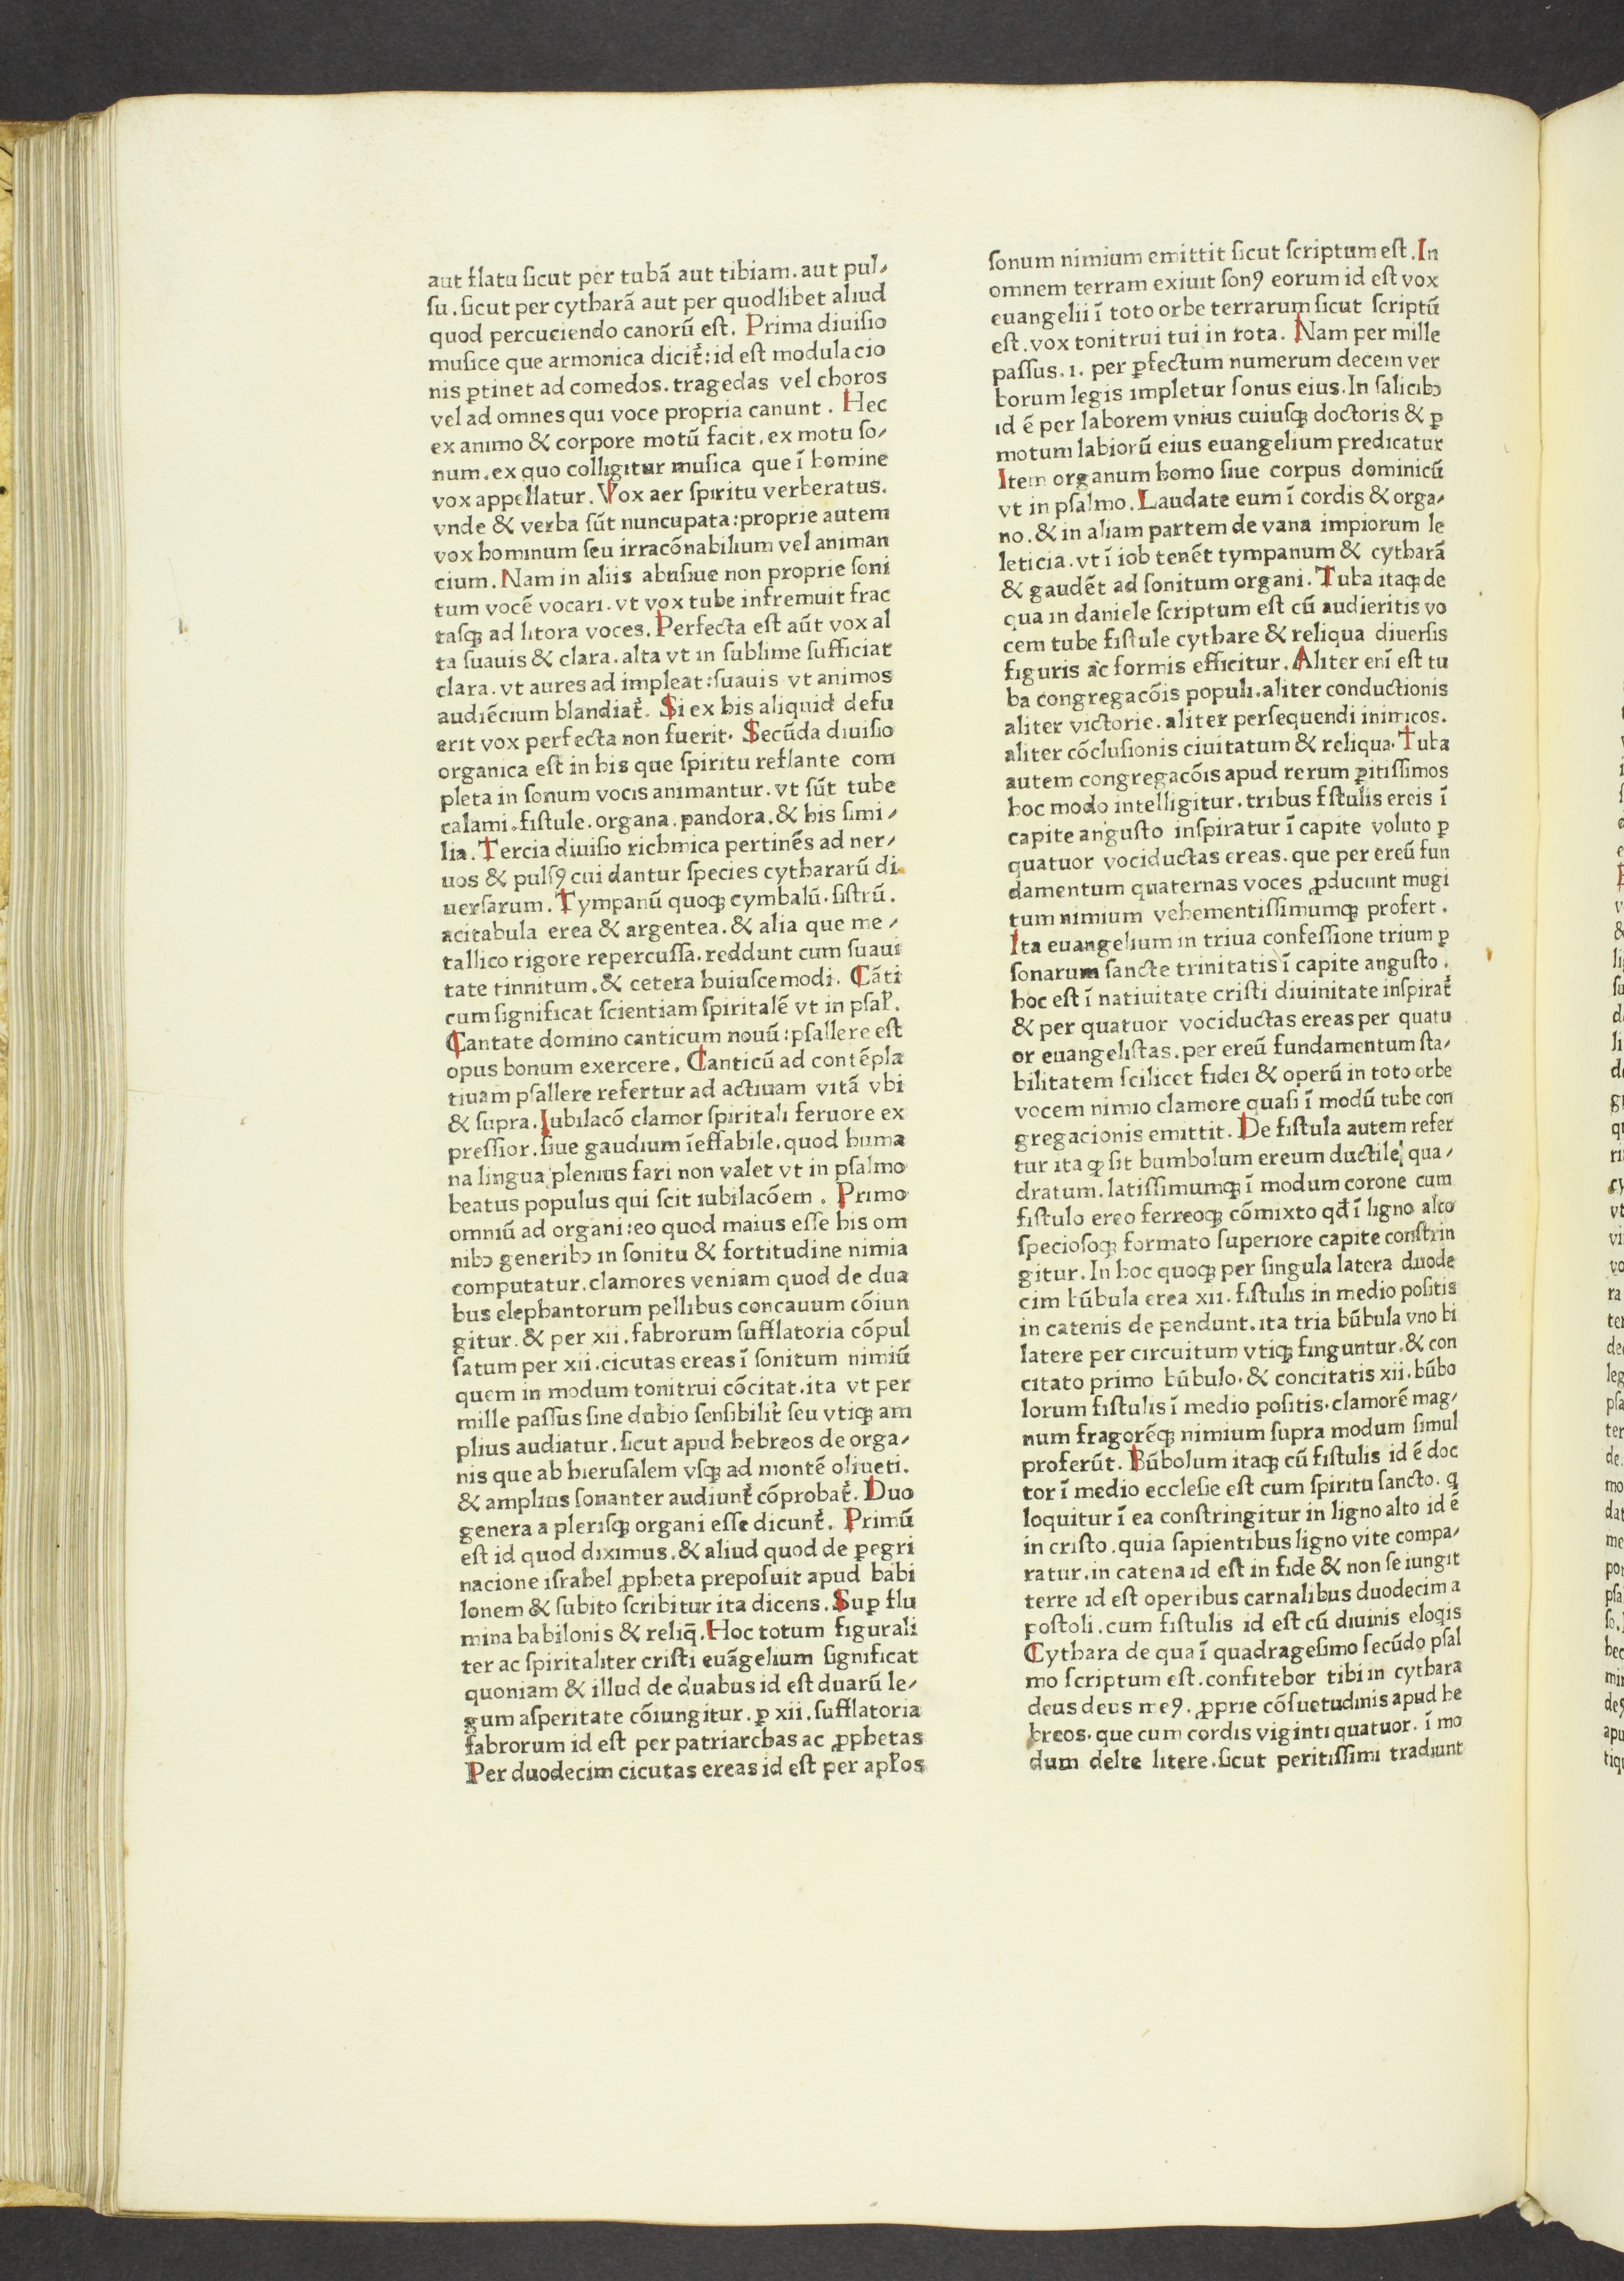 aut flatu ſicut per tubā aut tibiam. aut pul⸗
ſu. ſicut per cytharā aut per quodlibet aliud
quod percuciendo canorū eſt. Prima diuiſio
muſice que armonica dicit᷑: id eſt modulacio
nis ꝑtinet ad comedos. tragedas vel choros
vel ad omnes qui voce propria canunt. Hec
ex animo & corpore motū facit. ex motu ſo⸗
num. ex quo colligitur muſica que ī homine
vox appellatur. Vox aer ſpiritu verberatus.
vnde & verba ſūt nuncupata: proprie autem
vox hominum ſeu irracōnabilium vel animan
cium. Nam in aliis abuſiue non proprie ſoni
tum vocē vocari. vt vox tube infremuit frac
taſqꝫ ad litora voces. Perfecta eſt aūt vox al
ta ſuauis & clara. alta vt in ſublime ſufficiat
clara. vt aures ad impleat: ſuauis vt animos
audiēcium blandiat᷑. Si ex his aliquid defu
erit vox perfecta non fuerit. Secūda diuiſio
organica eſt in his que ſpiritu reflante com
pleta in ſonum vocis animantur. vt ſūt tube
calami. fiſtule. organa. pandora. & his ſimi⸗
lia. Tercia diuiſio richmica pertinēs ad ner⸗
uos & pulſꝯ cui dantur ſpecies cythararū di
uerſarum. Tympanū quoqꝫ cymbalū. ſiſtrū.
acitabula erea & argentea. & alia que me⸗
tallico rigore repercuſſa. reddunt cum ſuaui
tate tinnitum. & cetera huiuſcemodi. Cāti
cum ſignificat ſcientiam ſpiritalē vt in pſal̛.
Cantate domino canticum nouū: pſallere eſt
opus bonum exercere. Canticū ad contēpla
tiuam pſallere refertur ad actiuam vitā vbi
& ſupra. Iubilacō clamor ſpiritali feruore ex
preſſior. ſiue gaudium īeffabile. quod huma
na lingua plenius fari non valet vt in pſalmo
beatus populus qui ſcit iubilacōem. Primo
omniū ad organi: eo quod maius eſſe his om
nibꝫ generibꝫ in ſonitu & fortitudine nimia
computatur. clamores veniam quod de dua
bus elephantorum pellibus concauum cōiun
gitur. & per xii. fabrorum ſufflatoria cōpul
ſatum per xii. cicutas ereas ī ſonitum nimiū
quem in modum tonitrui cōcitat. ita vt per
mille paſſus ſine dubio ſenſibilit᷑ ſeu vtiqꝫ am
plius audiatur. ſicut apud hebreos de orga⸗
nis que ab hieruſalem vſqꝫ ad montē oliueti.
& amplius ſonanter audiunt᷑ cōprobat᷑. Duo
genera a pleriſqꝫ organi eſſe dicunt᷑. Primū
eſt id quod diximus. & aliud quod de ꝑegri
nacione iſrahel ꝓpheta prepoſuit apud babi
lonem & ſubito ſcribitur ita dicens. Suꝑ flu
mina babilonis & reliq̄. Hoc totum figurali
ter ac ſpiritaliter criſti euāgelium ſignificat
quoniam & illud de duabus id eſt duarū le⸗
gum aſperitate cōiungitur. ꝑ xii. ſufflatoria
fabrorum id eſt per patriarchas ac ꝓphetas
Per duodecim cicutas ereas id eſt per apl̛os
ſonum nimium emittit ſicut ſcriptum eſt. In
omnem terram exiuit ſonꝯ eorum id eſt vox
euangelii ī toto orbe terrarum ſicut ſcriptū
eſt. vox tonitrui tui in rota. Nam per mille
paſſus. ı. per ꝑfectum numerum decem ver
borum legis impletur ſonus eius. In ſalicibꝫ
id ē per laborem vnius cuiuſqꝫ doctoris & ꝑ
motum labiorū eius euangelium predicatur
Item organum homo ſiue corpus dominicū
vt in pſalmo. Laudate eum ī cordis & orga⸗
no. & in aliam partem de vana impiorum le
leticia. vt ī iob tenēt tympanum & cytharā
& gaudēt ad ſonitum organi. Tuba itaqꝫ de
qua in daniele ſcriptum eſt cū audieritis vo
cem tube fiſtule cythare & reliqua diuerſis
figuris ac formis efficitur. Aliter enī eſt tu
ba congregacōis populi. aliter conductionis
aliter victorie. aliter perſequendi inimicos.
aliter cōcluſionis ciuitatum & reliqua. Tuba
autem congregacōis apud rerum ꝑitiſſimos
hoc modo intelligitur. tribus fſtulis ereis ī
capite anguſto inſpiratur ī capite voluto ꝑ
quatuor vociductas ereas. que per ereū fun
damentum quaternas voces ꝓducunt mugi
tum nimium vehementiſſimumqꝫ profert.
Ita euangelium in triua confeſſione trium ꝑ
ſonarum ſancte trinitatis ī capite anguſto.
hoc eſt ī natiuitate criſti diuinitate inſpirat᷑
& per quatuor vociductas ereas per quatu
or euangeliſtas. per ereū fundamentum ſta⸗
bilitatem ſcilicet fidei & operū in toto orbe
vocem nimio clamore quaſi ī modū tube con
gregacionis emittit. De fiſtula autem refer
tur ita ꝙ ſit bumbolum ereum ductile qua⸗
dratum. latiſſimumqꝫ ī modum corone cum
fiſtulo ereo ferreoqꝫ cōmixto qđ ī ligno alto
ſpecioſoqꝫ formato ſuperiore capite conſtrin
gitur. In hoc quoqꝫ per ſingula latera duode
cim būbula erea xii. fiſtulis in medio poſitis
in catenis de pendunt. ita tria būbula vno bi
latere per circuitum vtiqꝫ finguntur. & con
citato primo būbulo. & concitatis xii. būbo
lorum fiſtulis ī medio poſitis. clamorē mag⸗
num fragorēqꝫ nimium ſupra modum ſimul
proferūt. Būbolum itaqꝫ cū fiſtulis id ē doc
tor ī medio eccleſie eſt cum ſpiritu ſancto. q̇
loquitur ī ea conſtringitur in ligno alto id ē
in criſto. quia ſapientibus ligno vite compa⸗
ratur. in catena id eſt in fide & non ſe iungit
terre id eſt operibus carnalibus duodecim a
poſtoli. cum fiſtulis id eſt cū diuinis elogis
Cythara de qua ī quadrageſimo ſecūdo pſal
mo ſcriptum eſt. confitebor tibi in cythara
deus deus meꝯ. ꝓprie cōſuetudinis apud he
breos. que cum cordis viginti quatuor. ī mo
dum delte litere. ſicut peritiſſimi tradiunt